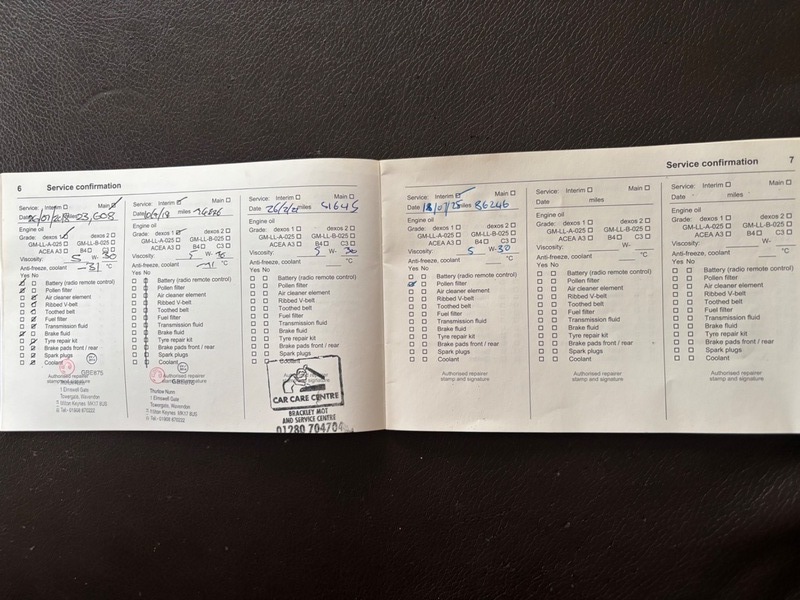 6 Service confirmation
Service: Interim Main
Date miles 23,608
Engine oil
Grade: dexos 1 dexos 2
GM-LL-A-025 GM-LL-B-025
ACEA A3 B4 C3
Viscosity: 5 W- 30
Anti-freeze, coolant -31 °C
Yes No
Battery (radio remote control)
Pollen filter
Air cleaner element
Ribbed V-belt
Toothed belt
Fuel filter
Transmission fluid
Brake fluid
Tyre repair kit
Brake pads front / rear
Spark plugs
Coolant
Authorised repairer
stamp and signature
Towergate, Wavendon
Milton Keynes. MK17 8US
Tel - 01908 670222
Service: Interim Main
Date miles
Engine oil
Grade: dexos 1 dexos 2
GM-LL-A-025 GM-LL-B-025
ACEA A3 B4 C3
Viscosity: 5 W- 30
Anti-freeze, coolant °C
Yes No
Battery (radio remote control)
Pollen filter
Air cleaner element
Ribbed V-belt
Toothed belt
Fuel filter
Transmission fluid
Brake fluid
Tyre repair kit
Brake pads front / rear
Spark plugs
Coolant
Authorised repairer
stamp and signature
Thurlow Nunn
1 Elmswell Gate
Towergate, Wavendon
Milton Keynes. MK17 8US
Tel - 01908 670222
Service: Interim Main
Date 26/2/21 miles 51645
Engine oil
Grade: dexos 1 dexos 2
GM-LL-A-025 GM-LL-B-025
ACEA A3 B4 C3
Viscosity: 5 W- 30
Anti-freeze, coolant °C
Yes No
Battery (radio remote control)
Pollen filter
Air cleaner element
Ribbed V-belt
Toothed belt
Fuel filter
Transmission fluid
Brake fluid
Tyre repair kit
Brake pads front / rear
Spark plugs
Coolant
Authorised repairer
stamp and signature
CAR CARE CENTRE
BRACKLEY MOT
AND SERVICE CENTRE
01280 704704
Service confirmation 7
Service: Interim Main
Date 18/07/25 miles 86246
Engine oil
Grade: dexos 1 dexos 2
GM-LL-A-025 GM-LL-B-025
ACEA A3 B4 C3
Viscosity: 5 W- 30
Anti-freeze, coolant °C
Yes No
Battery (radio remote control)
Pollen filter
Air cleaner element
Ribbed V-belt
Toothed belt
Fuel filter
Transmission fluid
Brake fluid
Tyre repair kit
Brake pads front / rear
Spark plugs
Coolant
Authorised repairer
stamp and signature
Service: Interim Main
Date miles
Engine oil
Grade: dexos 1 dexos 2
GM-LL-A-025 GM-LL-B-025
ACEA A3 B4 C3
Viscosity: W-
Anti-freeze, coolant °C
Yes No
Battery (radio remote control)
Pollen filter
Air cleaner element
Ribbed V-belt
Toothed belt
Fuel filter
Transmission fluid
Brake fluid
Tyre repair kit
Brake pads front / rear
Spark plugs
Coolant
Authorised repairer
stamp and signature
Service: Interim Main
Date miles
Engine oil
Grade: dexos 1 dexos 2
GM-LL-A-025 GM-LL-B-025
ACEA A3 B4 C3
Viscosity: W-
Anti-freeze, coolant °C
Yes No
Battery (radio remote control)
Pollen filter
Air cleaner element
Ribbed V-belt
Toothed belt
Fuel filter
Transmission fluid
Brake fluid
Tyre repair kit
Brake pads front / rear
Spark plugs
Coolant
Authorised repairer
stamp and signature